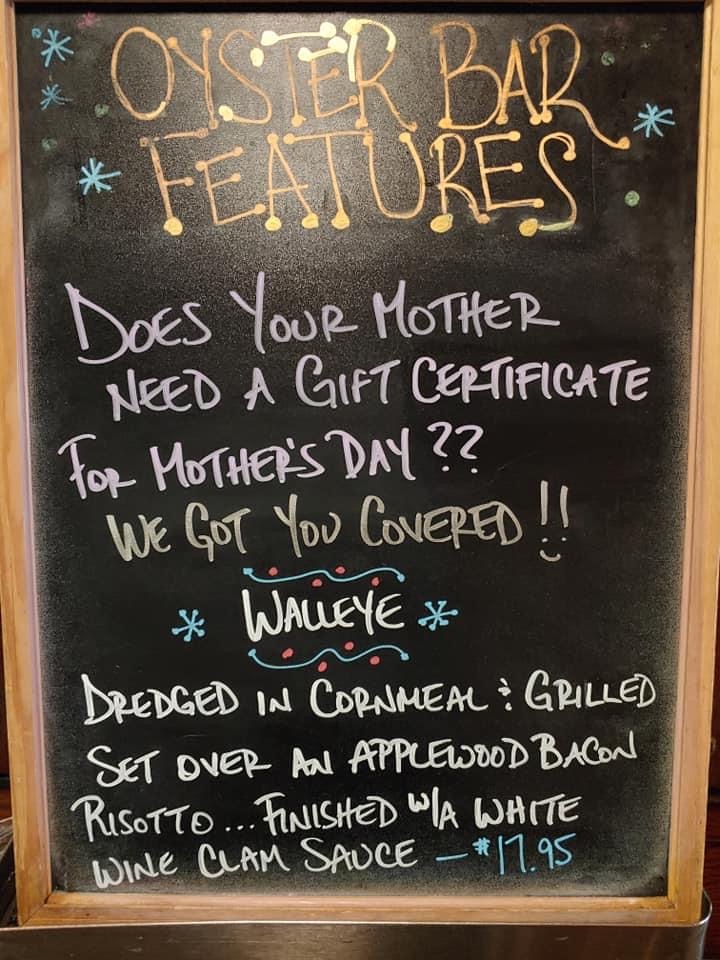 OYSTER BAR
FEATURES
DOES YOUR MOTHER
NEED A GIFT CERTIFICATE
FOR MOTHER'S DAY ??
WE GOT YOU COVERED !!
WALLEYE
DREDGED IN CORNMEAL & GRILLED
SET OVER AN APPLEWOOD BACON
RISOTTO... FINISHED W/A WHITE
WINE CLAM SAUCE - $17.95